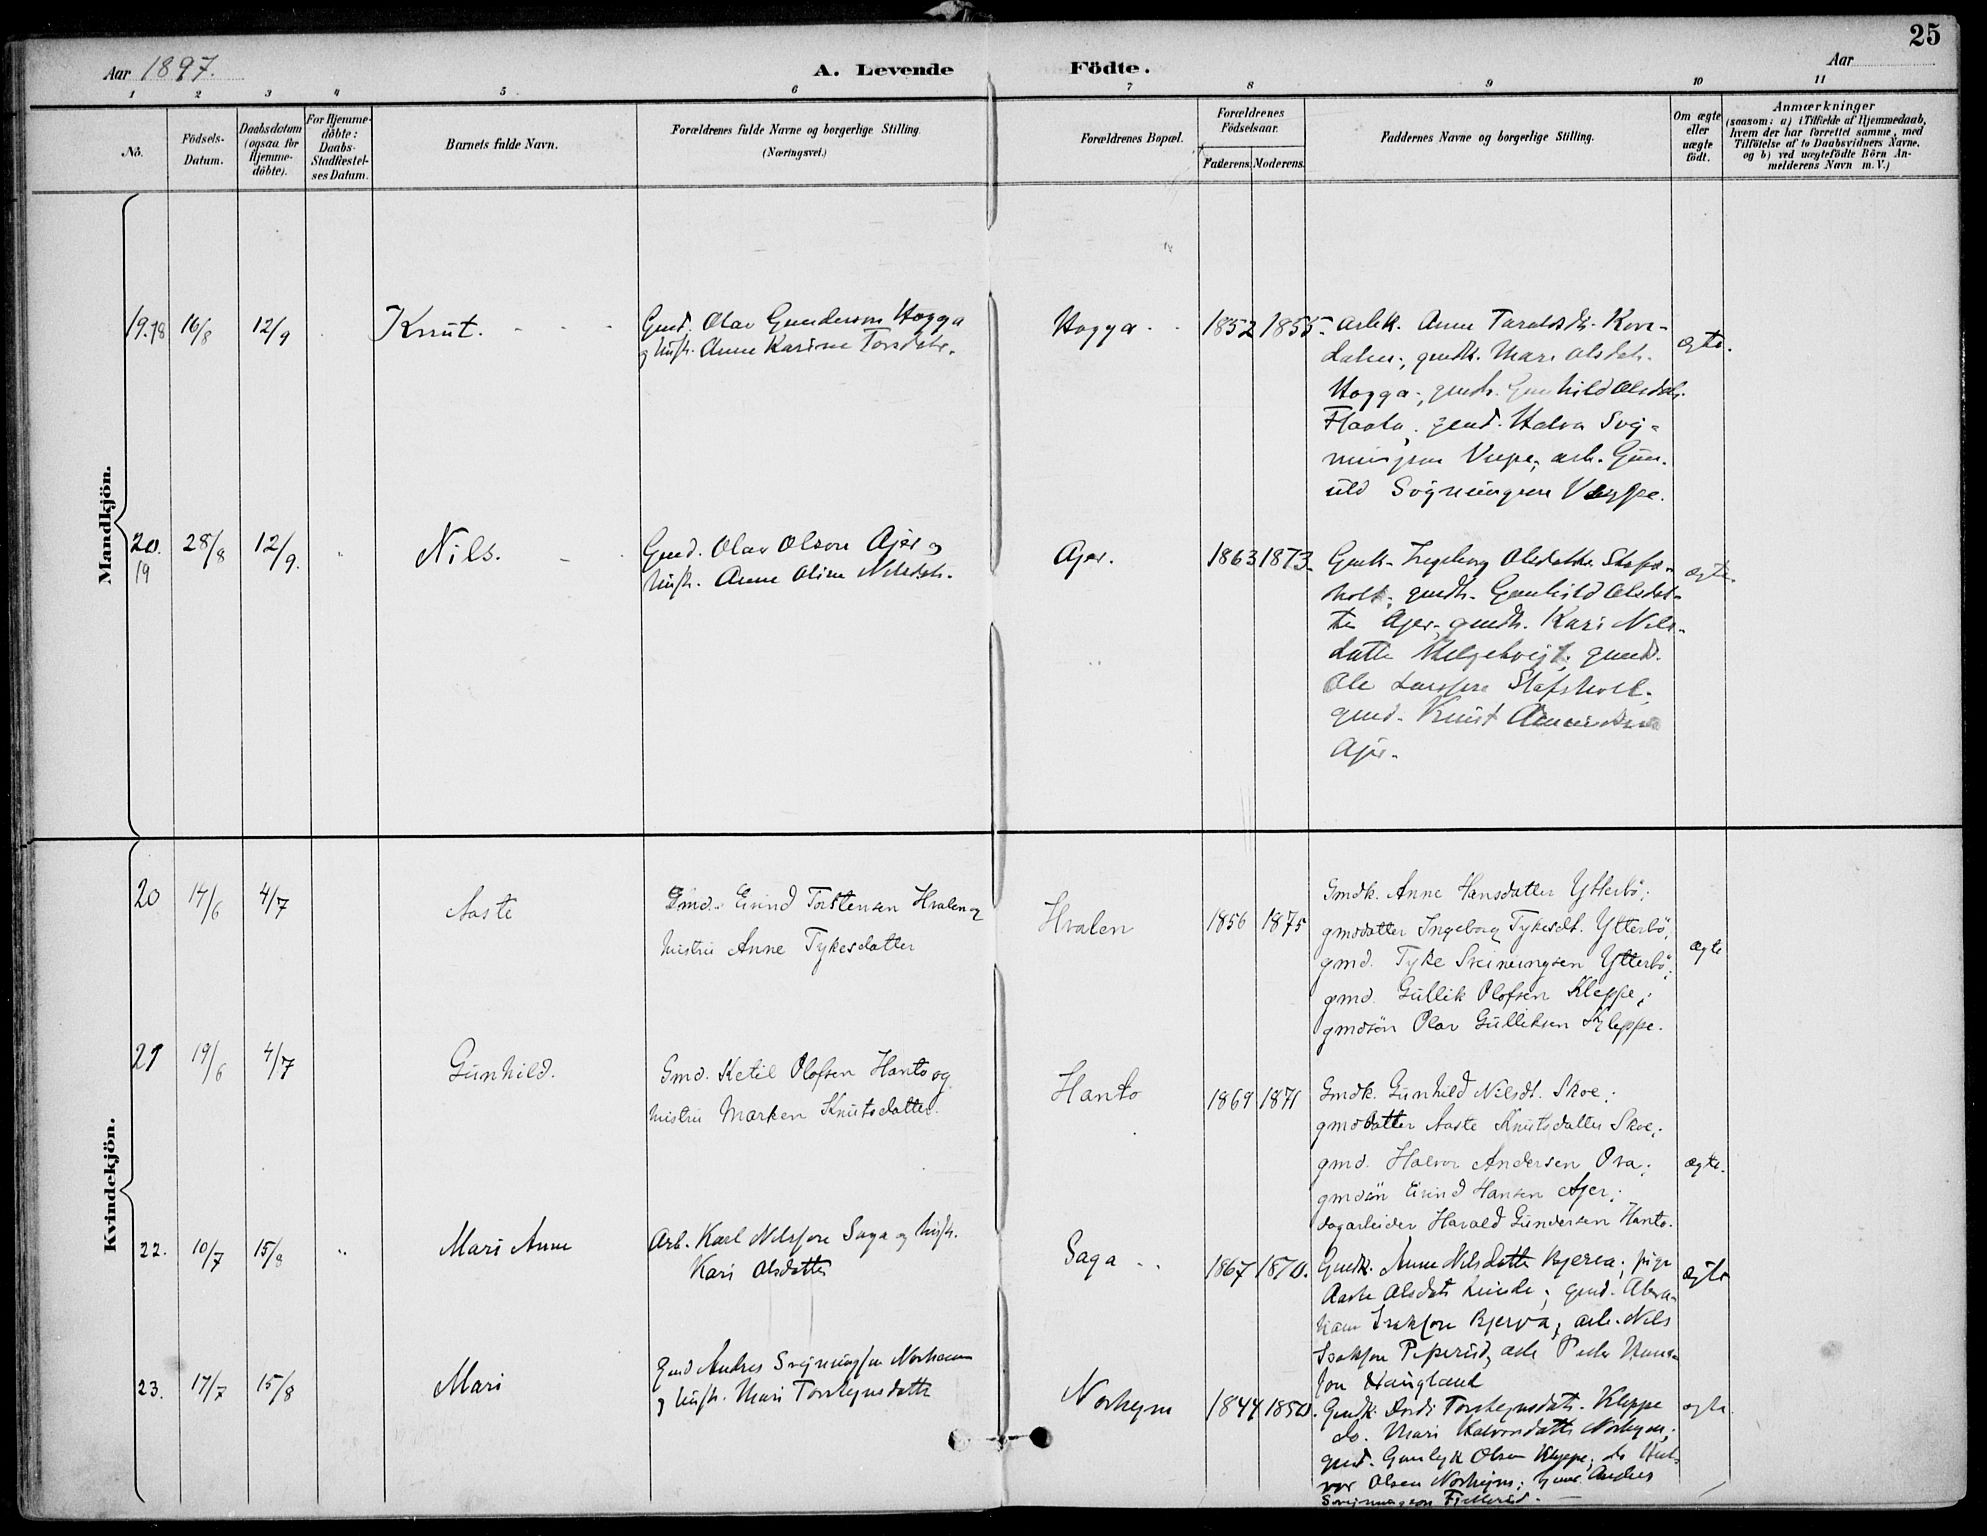 25
Aar 1897.
A. Levende Födte.
Aar
1 2 3 4 5 6 7 8 9 10 11
No.
Födsels-Datum.
Daabsdatum (ogsaa for Hjemme-döbte).
For Hjemme-döbte: Daabs-Stadfæstel-ses Datum.
Barnets fulde Navn.
Forældrenes fulde Navne og borgerlige Stilling.
(Næringsvei.)
Forældrenes Bopæl.
Forældrenes Födselsaar.
Faderens. Moderens.
Faddernes Navne og borgerlige Stilling.
Om ægte eller uægte födt.
Anmærkninger
(saasom: a) i Tilfælde af Hjemmedaab,
hvem der har forrettet samme, med
Tilföielse af to Daabsvidners Navne,
og b) ved uægtefödte Börn An-
melderens Navn m. V.)
Mandkjön.
19. 18 16/8 12/9 Knut.
Gmd. Olav Gunderson Hogga
og hustr. Anne Karine Torsdatr.
Hogga 1852 1855
arbk. Anne Taraldsdtr.
gmdk. Mari Olsdatr.
Hogga; gmdk. Gunhild Olsdtr.
Flaata; gmd. Halvor Svej-
ningsen Veepe; arb. Gun-
uld Svejningsen
ægte.
20. 19 28/8 12/9. Nils.
Gmd. Olav Olson Ajer og
hustr. Anne Oline Nilsdtr.
Ajer. 1863 1873
Gmdk. Ingeborg Olsdatter Stafs-
holt; gmdk. Gunhild Olsdat-
ter Ajer; gmdk. Kari Nils-
datter Helgetvejt; gmd.
Ole Larssen Stafsholt;
gmd. Knut
Ajer.
ægte.
Kvindekjön.
20 14/6 4/7 Aaste
Gmd. Eivind Torstensen Hvalen og
hustru Anne Tykesdatter
Hvalen 1856 1875
Gmdk. Anne Hansdatter Ytterbö;
gmddatter Ingeborg Tykesdt. Ytterbö;
gmd. Tyke Sveinungsen Ytterbö;
gmd. Gullik Olofsen Kleppe;
gmdsön Olav Gulliksen Kleppe.
ægte
21 19/6 4/7 Gunhild.
Gmd. Ketil Olofsen Hanto og
hustru Marken Knutsdatter.
Hanto 1869 1871
Gmdk. Gunhild Nilsdt. Skoe;
gmddatter Aaste Knutsdatter Skoe;
gmd. Halvor Andersen Ova;
gmdsön Eivind Hansen Ajer;
dagarbeider Harald Gundersen Hanto.
ægte.
22. 10/7 15/8 " Mari Anne
Arb. Karl Nilssen Saga og hustr.
Kari Olsdatter
Saga 1867 1870.
Gmdk. Anne Nilsdatter Bjerva; pige
Aaste Olsdatr Linde; gmd. Abra-
ham Isaksen Bjerva; arb. Nils
Isaksen Piperud, arb. Peder Hans-
sen Haugland
ægte
23. 17/7 15/8 Mari
Gmd Andres Svejningsen Norhejm
og hustr. Mari Torsteynsdattr
Norhejm 1844 1850.
Gmdk. Dordi Torstejnsdatr. Kleppe
do. Mari Halvorsdatter Norhejm;
gmd. Gunleyk Olsen Kleppe; do Hal-
vor Olsen Norhejm; Andres
Svejningson
ægte.